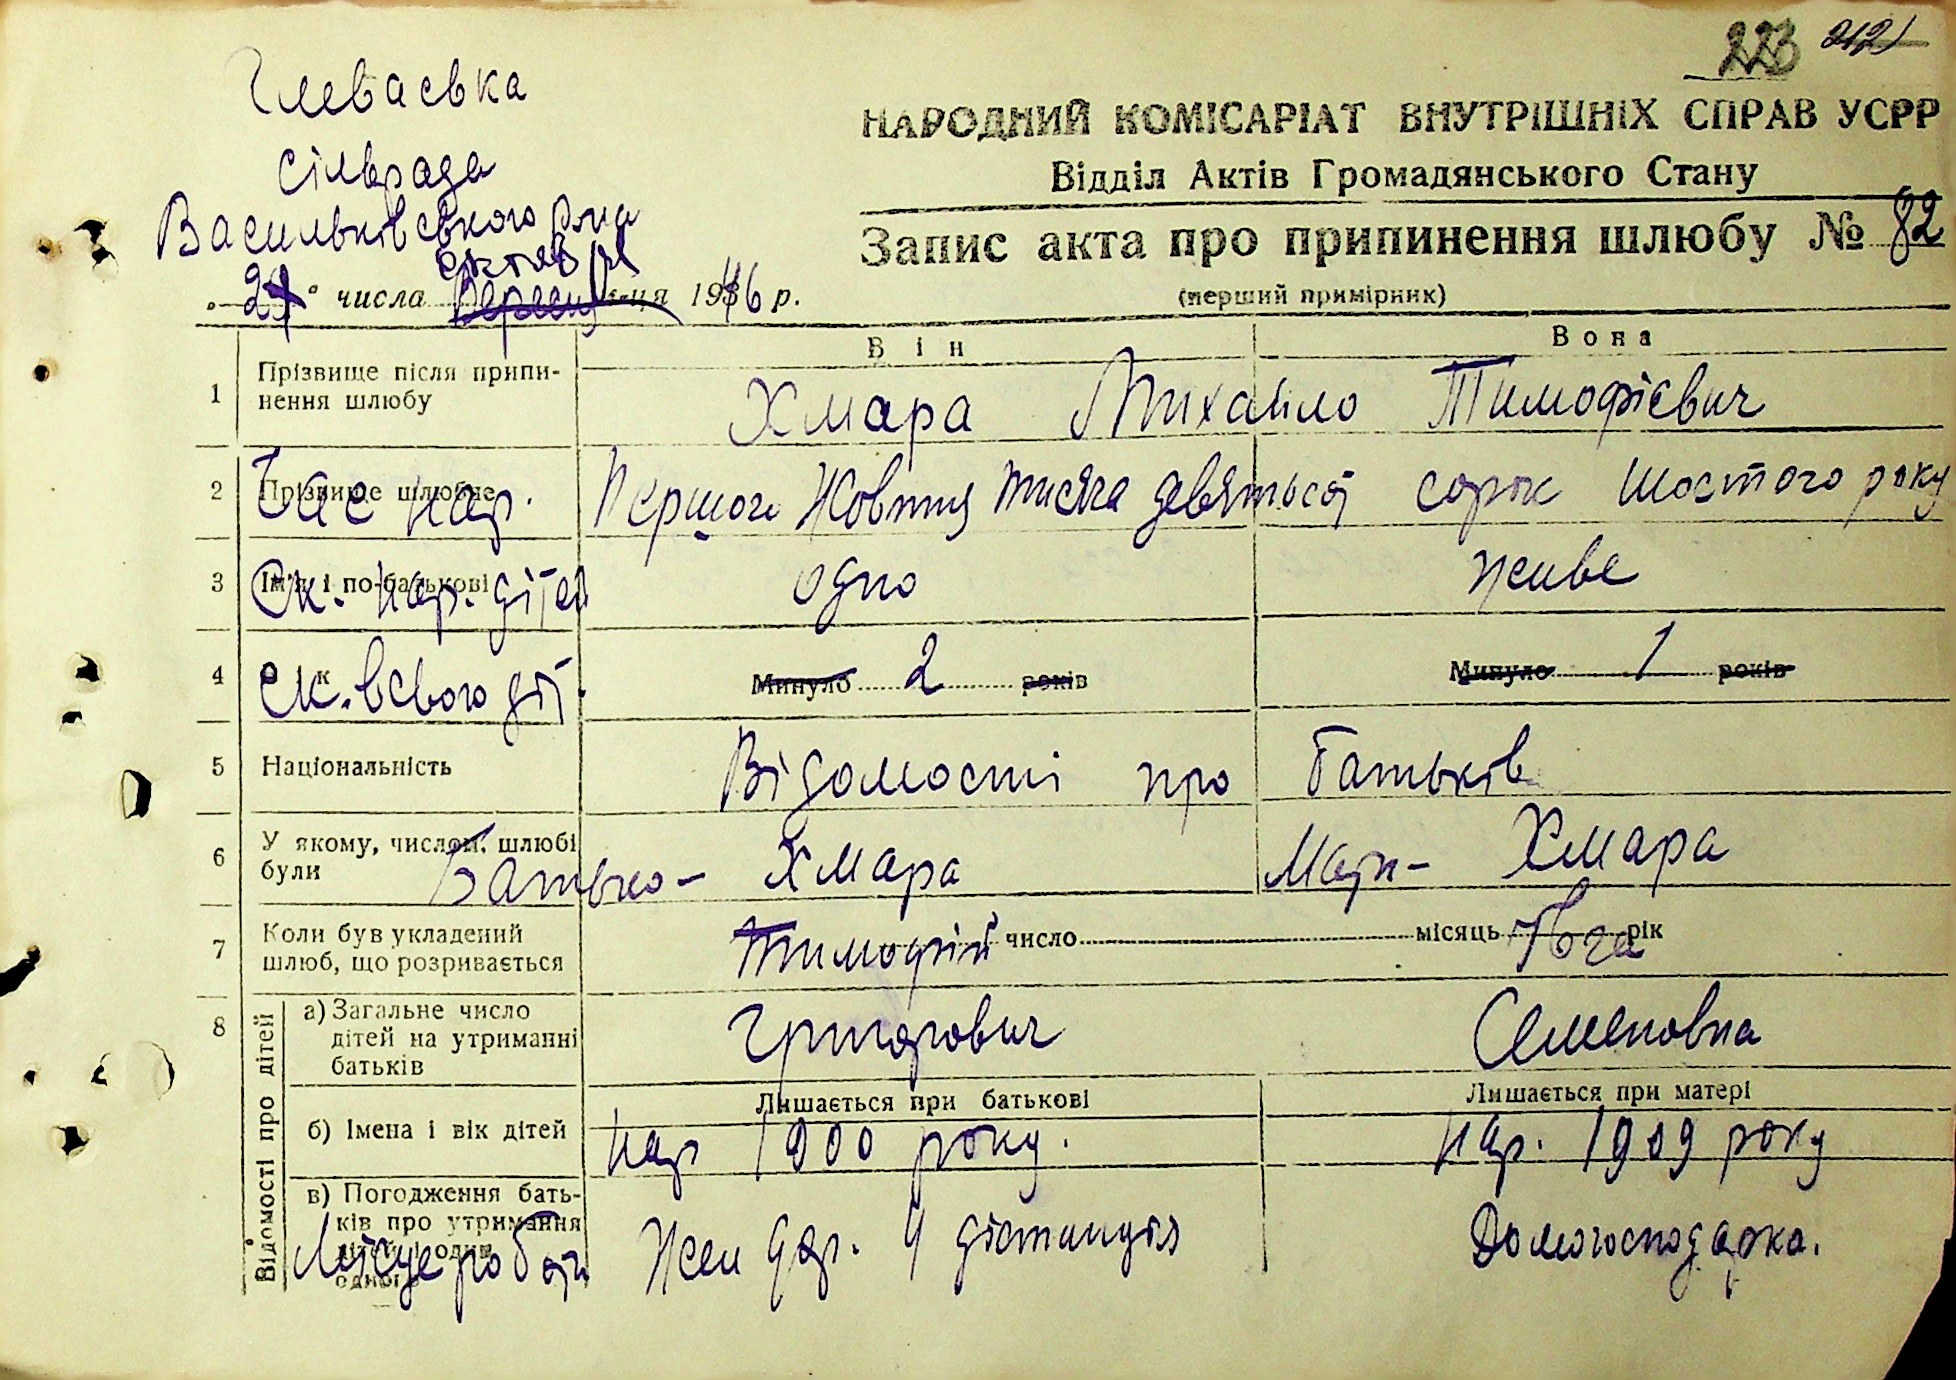 223 212
Глеваська
НАРОДНИЙ КОМІСАРІАТ ВНУТРІШНІХ СПРАВ УСРР
сільрада
Відділ Актів Громадянського Стану
Васильківського р-на
Запис акта про припинення шлюбу № 82
числа 1946 р.
(перший примірник)
Він Вона
1 Прізвище після припи-
нення шлюбу
Хмара Михайло Тимофієвич
2 Прізвище шлюбне
Час нар. Першого Жовтня тисяча девятьсот сорок шостого року
3 Ім'я і по-батькові
Ск. нар. дітей одно живе
4 Ск. всього діт. Минуло 2 років Минуло 1 років
5 Національність Відомості про батьків
6 У якому, числом, шлюбі
були
Батько- Хмара Мати- Хмара
7 Коли був укладений
шлюб, що розривається
Тимофій число місяць рік
8 Відомості про дітей
а) Загальне число
дітей на утриманні
батьків
Григорович Семеновна
Лишається при батькові Лишається при матері
б) Імена і вік дітей нар 1900 року. нар. 1909 року
в) Погодження бать-
ків про утримання
Місце роботи Жел дор. 4 дістанція Домогосподарка.